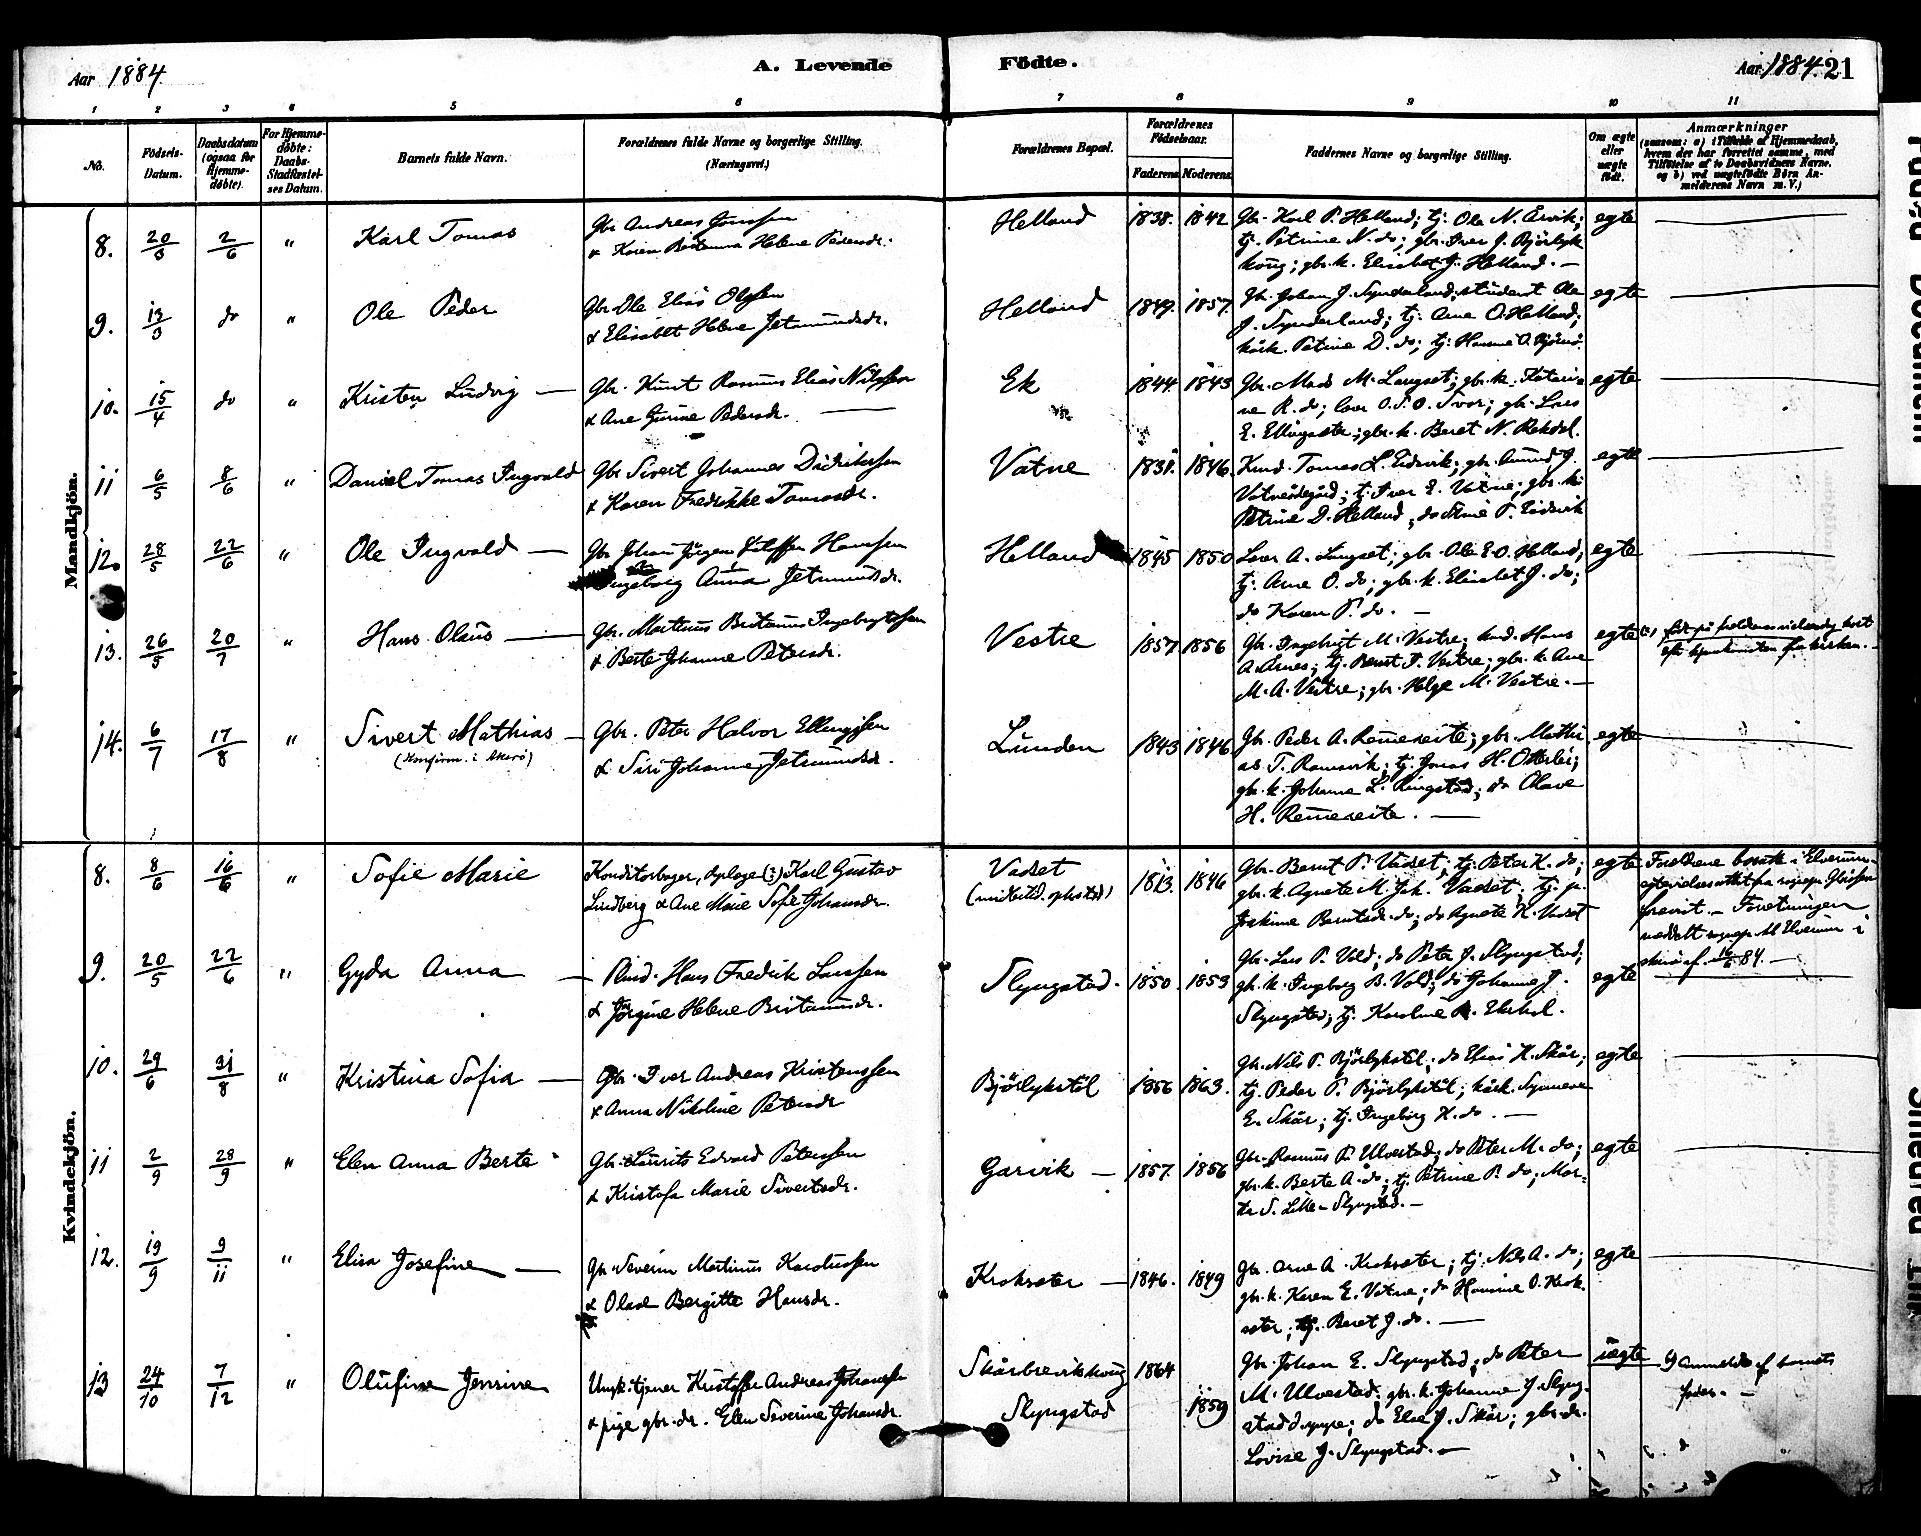 Aar 1884.
A. Levende
Födte.
Aar 1884. 21
1 2 3 4 5 6 7 8 9 10 11
No.
Födsels-Datum.
Daabsdatum (ogsaa for Hjemmedöbte).
For Hjemmedöbte: Daabs-Stadfæstelses Datum.
Barnets fulde Navn.
Forældrenes fulde Navne og borgerlige Stilling.
(Næringsvei.)
Forældrenes Bopæl.
Forældrenes Födselsaar.
Faderens Moderens
Faddernes Navne og borgerlige Stilling.
Om ægte eller uægte födt.
Anmærkninger
(saasom: a) i Tilfælde af Hjemmedaab,
hvem der har forrettet samme, med
Tilföielse af to Daabsvidners Navne.
og b) ved uægtefödte Börn Anmelderens Navn m. V.)
Mandkjön.
8. 20/5 2/6 " Karl Tomas
Gbr. Andreas Jonssen
& Karen Bertanna Helene Pedersdr.
Helland 1838. 1842
Gbr. Karl P. Helland; tj. Ole N. Ervik;
tj. Petrine N. do; gbr. Iver J. Björlyk
haug; gbr. k. Elisabet J. Helland. —
egte
9. 13/3 do " Ole Peder
Gbr. Ole Elias Olsen
& Elisabet Helene Jetmundsdr.
Helland 1849. 1857.
Gbr. Johan J. Synderland; student Ole
J. Synderland; tj. Arne O. Helland;
kårk. Petrine D. do; tj. Hanna O.
egte
10. 15/4 do " Kristen Ludvig —
Gbr. Knut Rasmus Elias Nilssen
& Ane Gurine Pedersdr. —
Ek 1844. 1843
Gbr. Mads M. Langset; gbr. k. Katari-
ne R. do; lærer O. S. O. Svor; gbr. Lars
E. Ellingsæter; gbr. k. Beret N. Rekdal.
egte
11 6/5 8/6 " Daniel Tomas Ingvald
Gbr. Sivert Johannes Didriksen
& Karen Fredrikke Tomasdr.
Vatne 1831. 1846.
Knud Tomas L. Eidsvik; gbr. Amund J.
Vatneödegård; tj. Iver E. Vatne; gbr. k.
Petrine D. Helland; do Stine T. Eidsvik
egte
12. 28/5 22/6 " Ole Ingvald —
Gbr. Johan Jörgen Hanssen
Ingeborg Anna Jetmundsdr.
Helland 1845 1850
Lærer A. Langset; gbr. Ole E. O. Helland;
tj. Arne O. do; gbr. k. Elisabet J. do;
do Karen P. do. —
egte
13. 26/5 20/7 " Hans Olaus —
Gbr. Martinus Bertanus Ingebrigtssen
& Berte Johanne Petersdr.
Vestre 1857 1856
Gbr. Ingebrigt M. Vestre; kand. Hans
A. Årnes; tj. Bernt P. Vestre; gbr. k. Ane
M. A. Vestre; gbr. Helge M. Vestre. —
egte
14. 6/7 17/8 " Sivert Mathias —
(Konfirm. i Akerö)
Gbr. Peter Halvor Ellingsen
& Siri Johanne Jetmundsdr.
Lunden 1843 1846
Gbr. Peder A. Remereite; gbr. Mathi
as T. Ramsvik; tj. Jonas H. Otterlei;
gbr. k. Johanne L. Ringstad; do Olave
H. Remereite. —
egte
Kvindekjön.
8. 8/6 16/6 " Sofie Marie
Konditorbager, (:) Karl Gustav
Lindberg & Ane Marie Sofie Johansdr.
Vadset
(midlertid. opholssted)
1813. 1846
Gbr. Bernt P. Vadset; tj. Peter K. do;
gbr. k. Agnete M. Joh. Vadset; tj. p.
Joakime Berntsdr. do; do Agnete K. Vadset
egte
Forældrene bosatte i Elverum
9. 20/5 22/6 " Gyda Anna —
Hans Fredrik Larssen
& Jörgine Helene Bertanusdr.
Slyngstad. 1850. 1853
Gbr. Lars P. Vold; do Peter J. Slyngstad;
gbr. k. Ingeborg B. Vold; do Johanne J.
Slyngstad; tj. Karoline
egte
10. 29/6 31/8 " Kristina Sofia —
Gbr. Iver Andreas Kristenssen
& Anna Nikoline Petersdr
Björlykstöl 1856 1863.
Gbr. Nils P. Björlykstöl; do Elias K. Skår;
tj. Peder P. Björlykstöl; kårk. Synneve
E. Skår; tj. Ingeborg K. do. —
egte
11 2/9 28/9 " Elen Anna Berte
Gbr. Laurits Edvard Peterssen
& Kristofa Marie Sivertsdr.
Garvik — 1857. 1856
Gbr. Rasmus P. Ulvestad; do Peter M. do;
gbr. k. Berte A. do; tj. Petrine P. do; Mar-
te S. Lille-Slyngstad. —
egte
12. 19/9 9/11 " Elisa Josefine —
Gbr. Severin Martinus Karolussen
& Olave Bergitte Hansdr.
Kroksæter — 1846. 1849
Gbr. Arne A. Kroksæter; tj. Nils A. do;
gbr. k. Karen E. Vatne; do Hansine O. Krok-
sæter; tj. Beret J. do. —
egte
13 24/10 7/12 " Olufine Jensine
Ungk. tjener Kristoffer Andreas Johanssen
& pige gbr. dr. Elen Severine Johansdr.
Skårbrevikhaug 1864
Slyngstad 1859
Gbr. Johan E. Slyngstad; do Peter
M. Ulvestad; gbr. k. Johanne J. Slyng-
stad; do Else J. Skår; gbr. dr.
Lovise J. Slyngstad. —
uegte
Anmeldt af barnets
fader. —